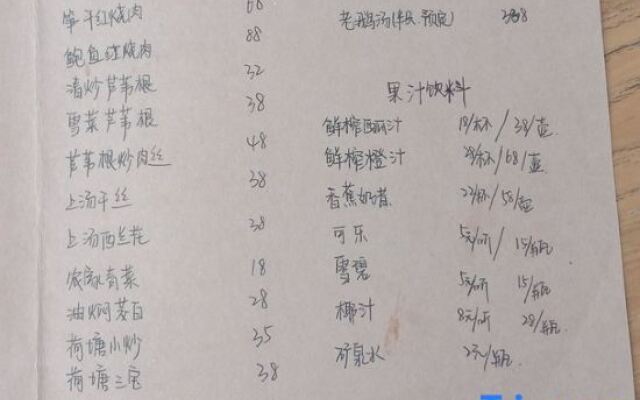 笋干红烧肉 68
鲍鱼红烧肉 88
清炒芦苇根 32
雪菜芦苇根 38
芦苇根炒肉丝 48
上汤干丝 38
上汤西兰花 38
农家青菜 18
油焖茭白 28
荷塘小炒 35
荷塘三宝 38
老鹅汤(半只 预定)
果汁饮料
鲜榨西瓜汁 18/杯/38/壶
鲜榨橙汁 28/杯/68/壶
香蕉奶昔 22/杯/58/壶
可乐 5元/听/15/瓶
雪碧 5元/听 15/瓶
椰汁 8元/听 28/瓶
矿泉水 2元/瓶